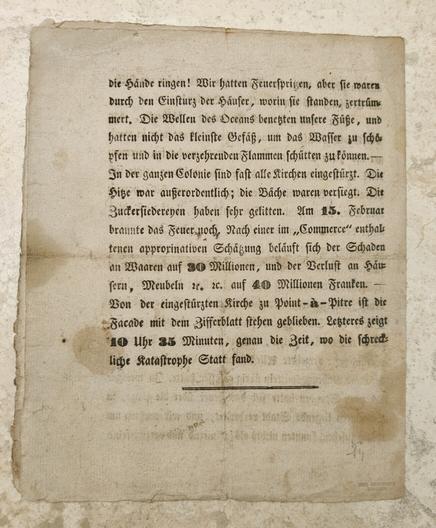 die Hände ringen! Wir hatten Feuerspritzen, aber sie waren
durch den Einsturz der Häuser, worin sie standen, zertrüm-
mert. Die Wellen des Oceans benetzten unsere Füße, und
hatten nicht das kleinste Gefäß, um das Wasser zu schö-
pfen und in die verzehrenden Flammen schütten zu können. —
In der ganzen Colonie sind fast alle Kirchen eingestürzt. Die
Hitze war außerordentlich; die Bäche waren versiegt. Die
Zuckersiedereyen haben sehr gelitten. Am 15. Februar
brannte das Feuer noch. Nach einer im „Commerce“ enthal-
tenen approrinativen Schätzung beläuft sich der Schaden
an Waaren auf 30 Millionen, und der Verlust an Häu-
sern, Meubeln ꝛc. ꝛc. auf 40 Millionen Franken. —
Von der eingestürzten Kirche zu Point-à-Pitre ist die
Facade mit dem Zifferblatt stehen geblieben. Letzteres zeigt
10 Uhr 35 Minuten, genau die Zeit, wo die schreck-
liche Katastrophe Statt fand.